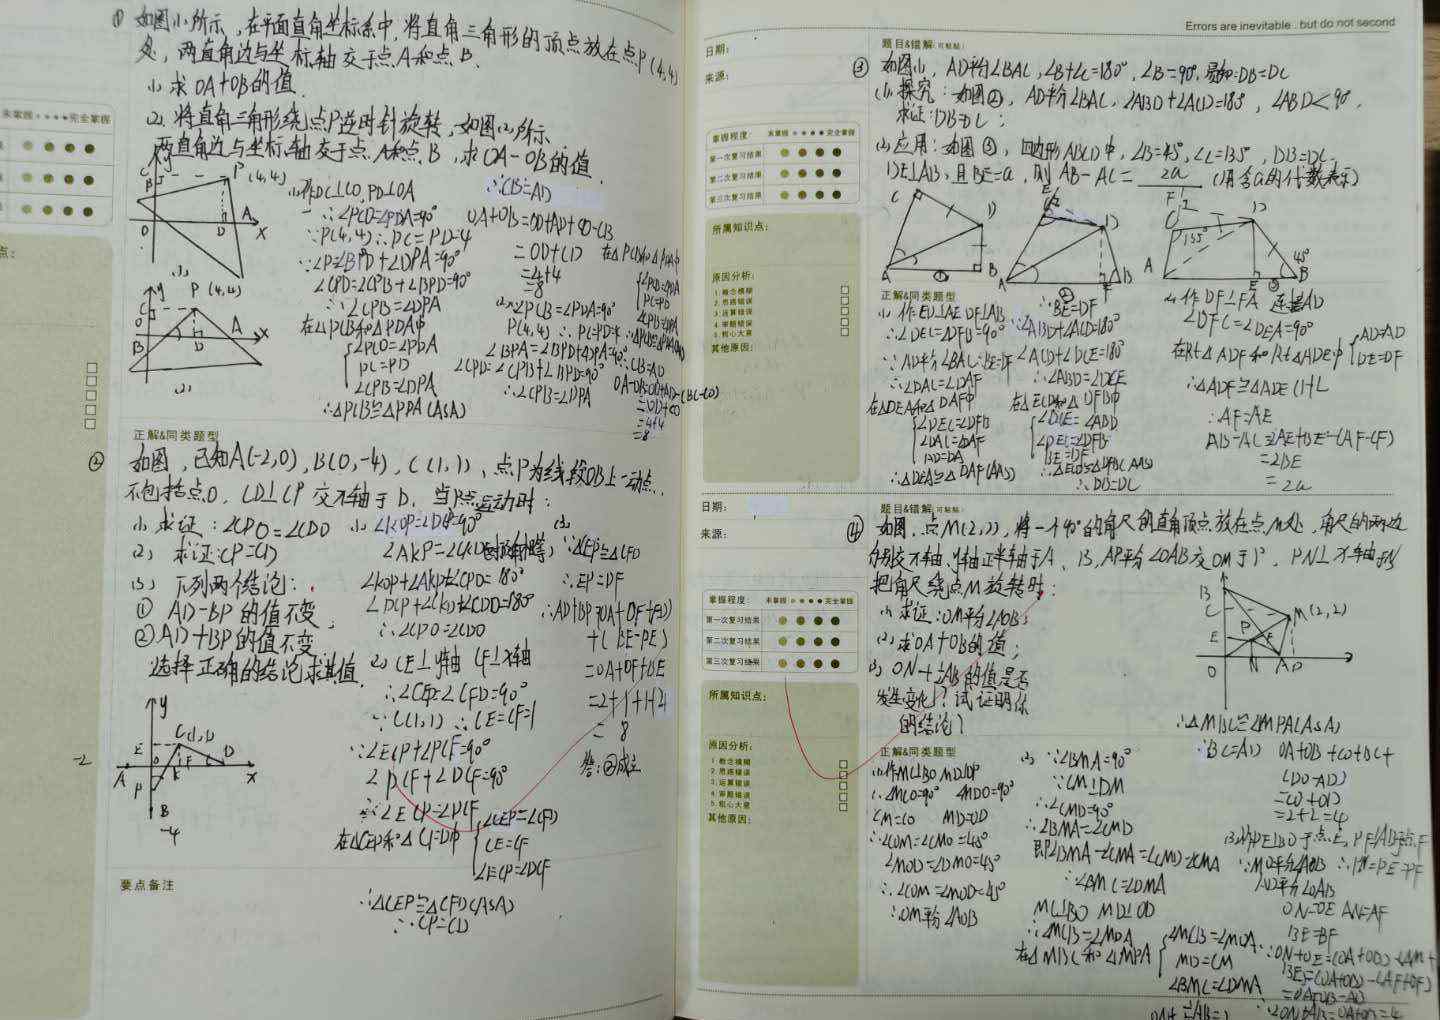 ① 如图(1)所示,在平面直角坐标系中,将直角三角形的顶点放在点P(4,4)
处,两直角边与坐标轴交于点A和点B.
(1)求OA+OB的值.
(2)将直角三角形绕点P逆时针旋转,如图(2)所示
两直角边与坐标轴交于点A和点B,求OA-OB的值.
未掌握 完全掌握
P(4,4)
(1)作PC⊥CO,PD⊥OA
∴∠PCO=∠PDA=90°
∵P(4,4)∴PC=PD=4
∵∠P=∠BPD+∠DPA=90°
∠CPD=∠CPB+∠BPD=90°
∴∠CPB=∠DPA
在△PCB和△PDA中
∠PCO=∠PDA
PC=PD
∠CPB=∠DPA
∴△PCB≌△PPA(ASA)
∴CB=AD
OA+OB=OD+AD+CO-CB
=OD+CD
=4+4
=8
(2)∵∠PCB=∠PDA=90°
P(4,4)∴PC=PD=4
∠BPA=∠BPD+∠DPA=90°
∠CPD=∠CPB+∠BPD=90°
∴∠CPB=∠DPA
∠CPB=∠DPA
∴CB=AD
=4+4
=8
y
C
B
O
D
A
x
(1)
y
P (4,4)
C
O
B
D
A
x
(2)
正解&同类题型
② 如图,已知A(-2,0),B(0,-4),C(1,1),点P为线段OB上一动点,
不包括点O,CD⊥CP交x轴于D,当P点运动时:
(1)求证:∠CPO=∠CDO
(2)求证:CP=CD
(3)下列两个结论:
①AD-BP的值不变,
②AD+BP的值不变
选择正确的结论求其值.
(1)∠KOP=∠DCP=90°
∠KOP+∠AKP+∠CPD=180°
∴∠CPO=∠CDO
(2)CE⊥y轴 CF⊥x轴
∴∠CEP=∠CFD=90°
∵C(1,1)∴CE=CF=1
∵∠ECP+∠PCF=90°
∠PCF+∠DCF=90°
∴∠ECP=∠DCF
在△CEP和△CFD中
∠CEP=∠CFD
CE=CF
∠ECP=∠DCF
∴△CEP≌△CFD(ASA)
∴CP=CD
(3)
∵△CEP≌△CFD
∴EP=DF
∴AD+BP=(OA+OF+FD)
+(BE-PE)
=OA+OF+BE
=2+1+1+4
=8
答:②成立
y
C(1,1)
E
O
F
D
A
-2
P
K
x
B
-4
要点备注
Errors are inevitable . but do not second
日期:
来源:
题目&错解(可粘贴)
③ 如图(1),AD平分∠BAC,∠B+∠C=180°,∠B=90°,易知:DB=DC
(1)探究:如图②,AD平分∠BAC,∠ABD+∠ACD=180°,∠ABD<90°,
求证:DB=DC;
(2)应用:如图③,四边形ABCD中,∠B=45°,∠C=135°,DB=DC,
DE⊥AB,且BE=a,则AB-AC= 2a (用含a的代数表示)
掌握程度: 未掌握 完全掌握
第一次复习结果
第二次复习结果
第三次复习结果
所属知识点:
原因分析:
1.概念模糊
2.思路错误
3.运算错误
4.审题错误
5.粗心大意
其他原因:
C
D
A
B
①
E
C
D
A
F
B
②
F
C
D
135°
45°
A
E
B
③
正解&同类题型
(1)作ED⊥AE DF⊥AB
∴∠DEC=∠DFB=90°
∵AD平分∠BAC
∴∠DAC=∠DAF
在△DEA和△DAF中
∠DEC=∠DFB
∠DAC=∠DAF
DA=DA
∴△DEA≌△DAF(AAS)
∴BE=DF
∵∠ABD+∠ACD=180°
∠ACD+∠DCE=180°
∴∠ABD=∠DCE
在△ECD和△DFB中
∠DCE=∠ABD
∠DEC=∠DFB
BE=DF
∴△ECD≌△DFB(AAS)
∴DB=DC
(2)作DF⊥FA 连接AD
∠DFC=∠DEA=90°
在Rt△ADF和Rt△ADE中
AD=AD
DE=DF
∴△ADF≌△ADE(HL
∴AF=AE
AB-AC=AE+BE-(AF-CF)
=2BE
=2a
日期:
来源:
题目&错解(可粘贴)
④ 如图,点M(2,2),将一个90°的角尺的直角顶点放在点M处,角尺的两边
分别交x轴、y轴正半轴于A、B,AP平分∠OAB交OM于P,PN⊥x轴于N
把角尺绕点M旋转时:
(1)求证:OM平分∠AOB;
(2)求OA+OB的值;
(3)ON+½AB的值是否
发生变化?试证明你
的结论?
掌握程度: 未掌握 完全掌握
第一次复习结果
第二次复习结果
第三次复习结果
所属知识点:
原因分析:
1.概念模糊
2.思路错误
3.运算错误
4.审题错误
5.粗心大意
其他原因:
B
C
M(2,2)
P
E
F
O
N
A
D
正解&同类题型
(1)作MC⊥BO MD⊥DP
∴∠MCO=90° ∠MDO=90°
CM=CO MD=OD
∴∠COM=∠CMO=45°
∠MOD=∠DMO=45°
∴∠COM=∠MOD=45°
∴OM平分∠AOB
(2)∵∠BMA=90°
∵CM⊥DM
∴∠CMD=90°
∴∠BMA=∠CMD
即∠BMA-∠CMA=∠CMD-∠CMA
∴∠BMC=∠DMA
MC⊥BO MD⊥OD
∴∠MCB=∠MDA
在△MBC和△MPA
∠MCB=∠MDA
MD=CM
∠BMC=∠DMA
∴△MBC≌△MPA(ASA)
∴BC=AD
OA+OB=CO+BC+
(DO-AD)
=CO+OD
=2+2=4
∵MO平分∠AOB
AP平分∠OAB
ON=OE AN=AF
BE=BF